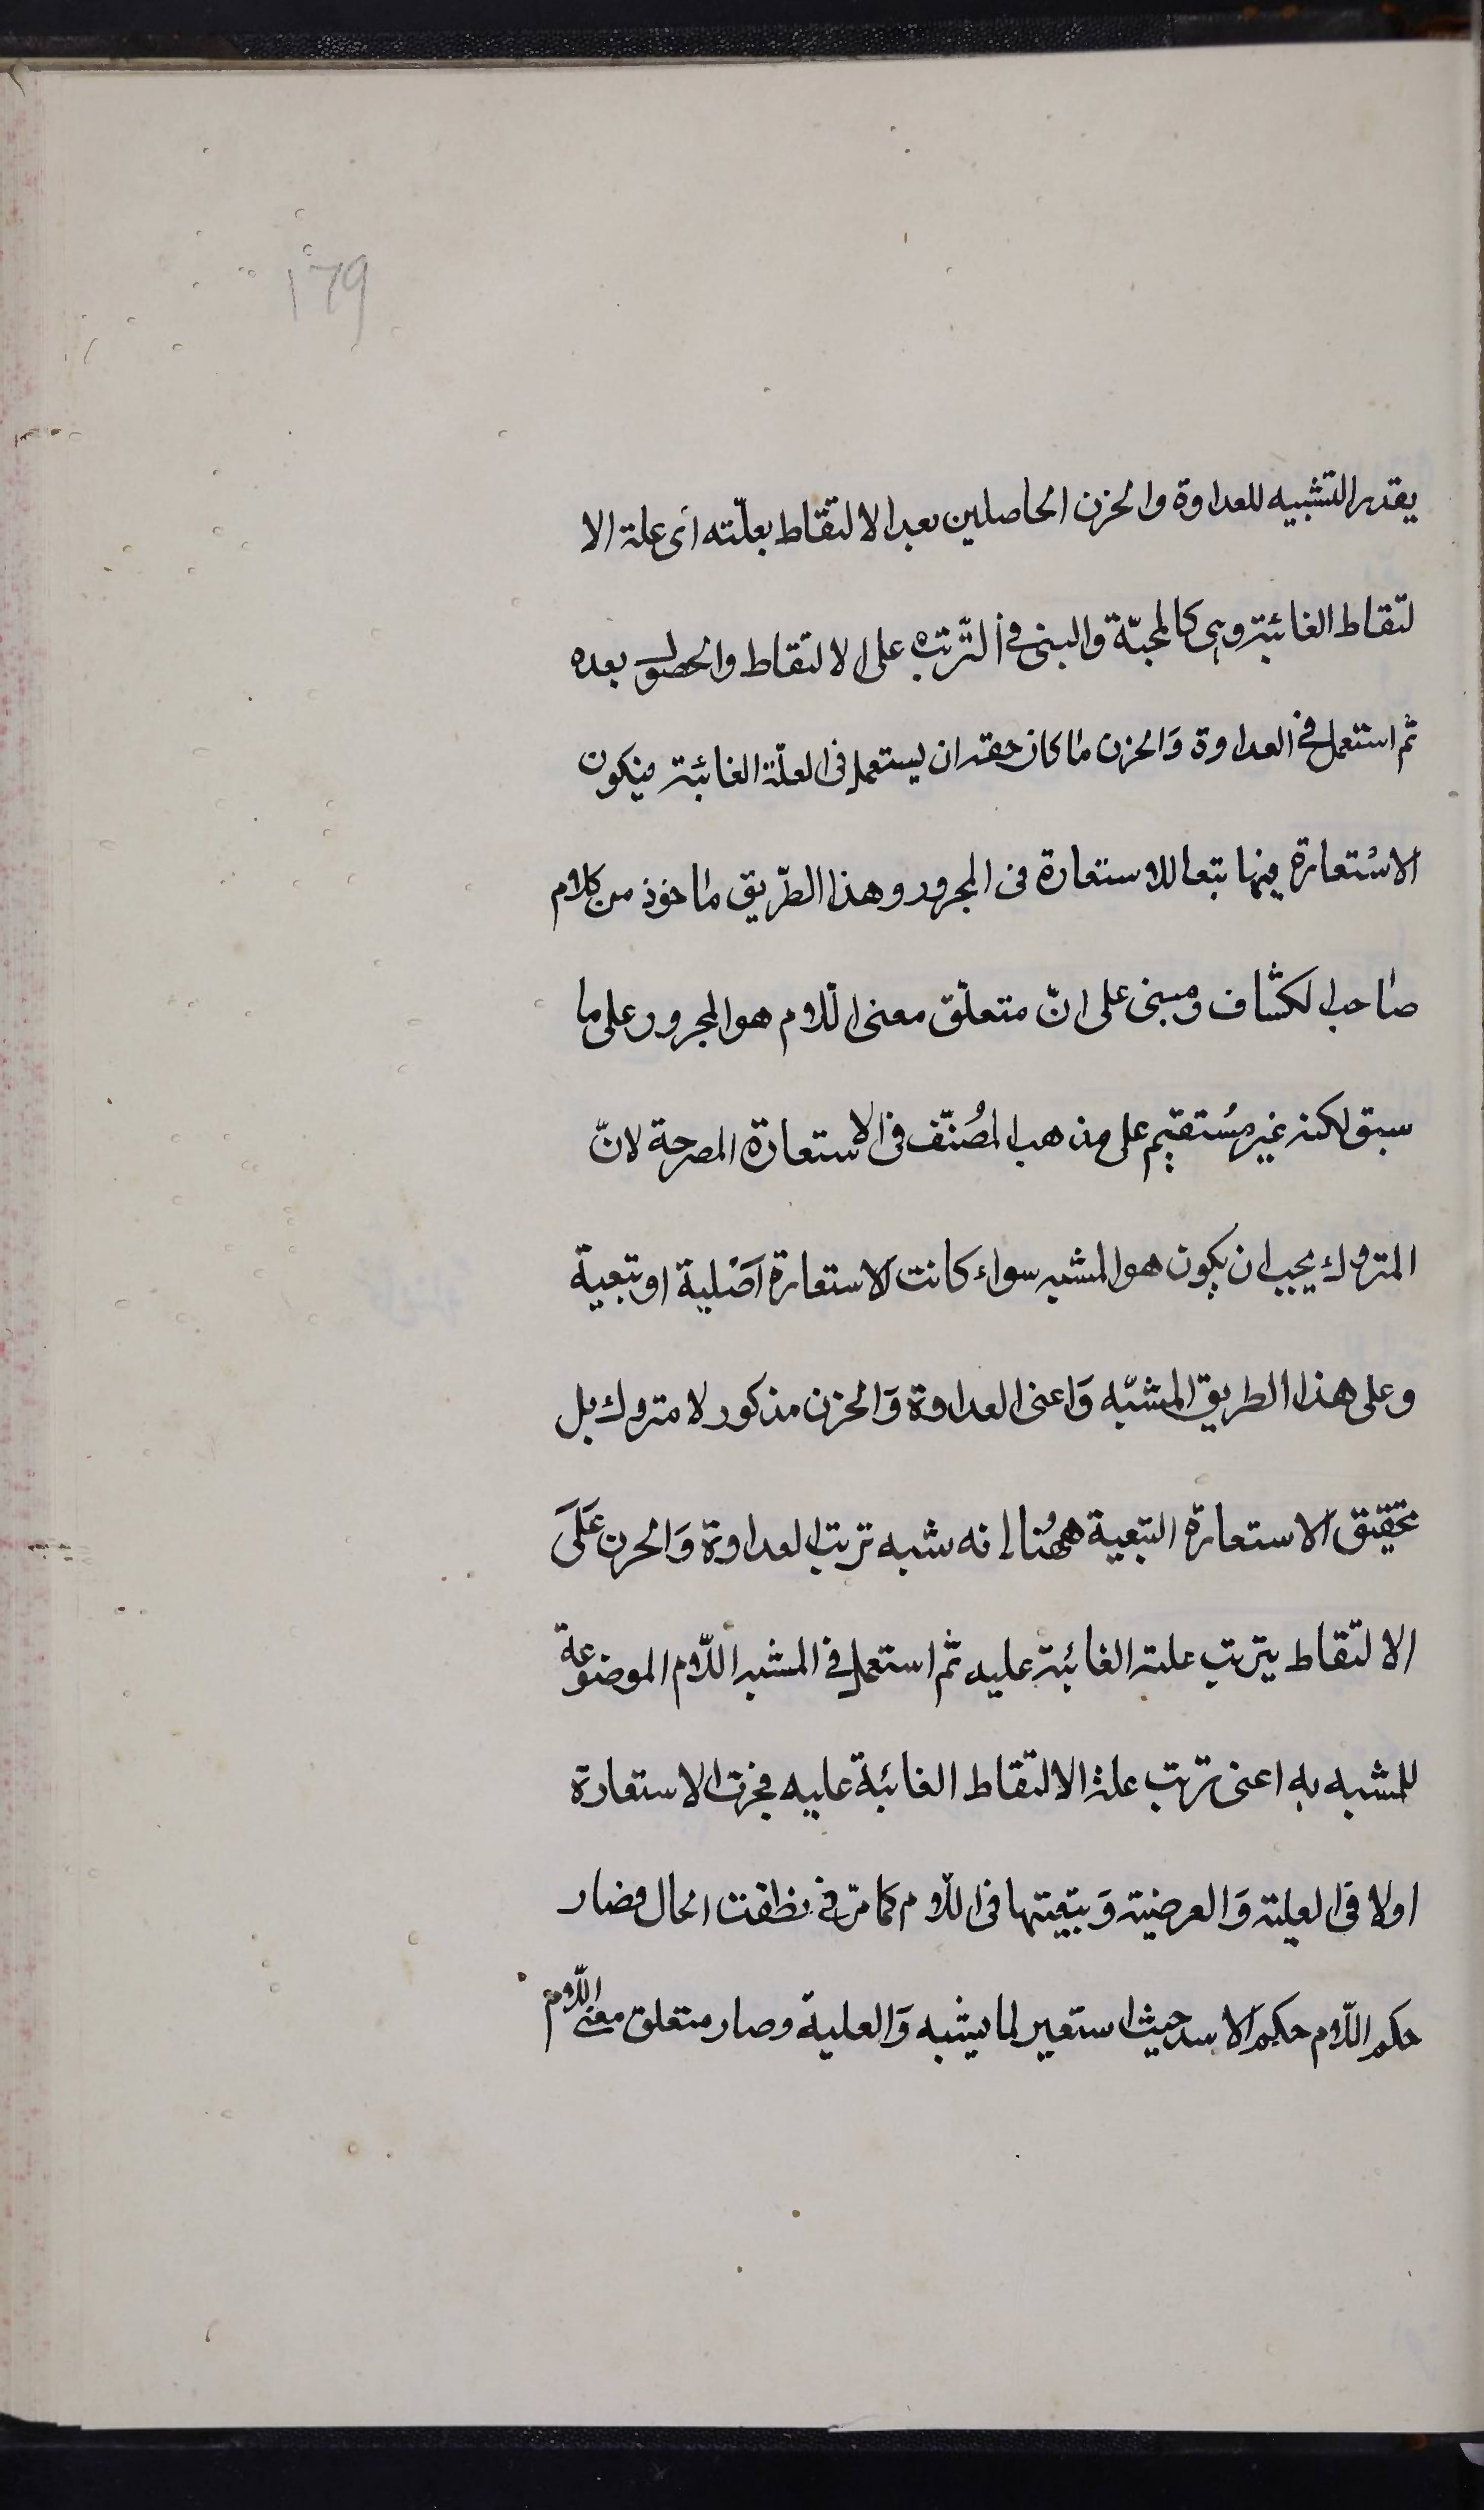 179
يقدر التشبيه للعداوة والحزن الحاصلين بعد الالتقاط بعلّته اى علة الا
لتقاط الغائية وهى كالمحبّة والبنى فى الترتب على الالتقاط والحصول بعده
ثم استعمل فى العداوة وَالحزن ما كان حقه ان يستعمل فى العلّة الغائية فيكون
الاسْتعارة فيها تبعا للاستعارة فى المجرور وهذا الطّريق ماخوذ من كلام
صاحب الكشّاف ومبنى على انّ متعلّق معنى اللّام هو المجرور على ما
سبق لكنه غير مُستقيم على مذهب المصُنّف فى الاستعارة المصرحة لانّ
المتروك يجب ان يكون هو المشبه سواء كانت الاستعارة اَصْلية او تبعية
وعلى هذا الطريق المشبّه وَاعنى العداوة وَالحزن مذكور لا متروك بل
تحقيق الاستعارة التبعية ههُنا انه شبه ترتب العداوة وَالحزن عَلىَ
الالتقاط بترتب علته الغائية عليه ثم استعمل فى المشبه اللّام الموضوعة
للمشبه به اعنى ترتب علة الالتقاط الغائية عليه فجرت الاستعارة
اولا فى العلية وَالعرضية وَبتبعيتها فى اللّام كما مرّ فى نطقت الحال فصار
حكم اللّام حكم الاسد حيث استعير لما يشبه وَالعلية وصار متعلق معنى اللّام